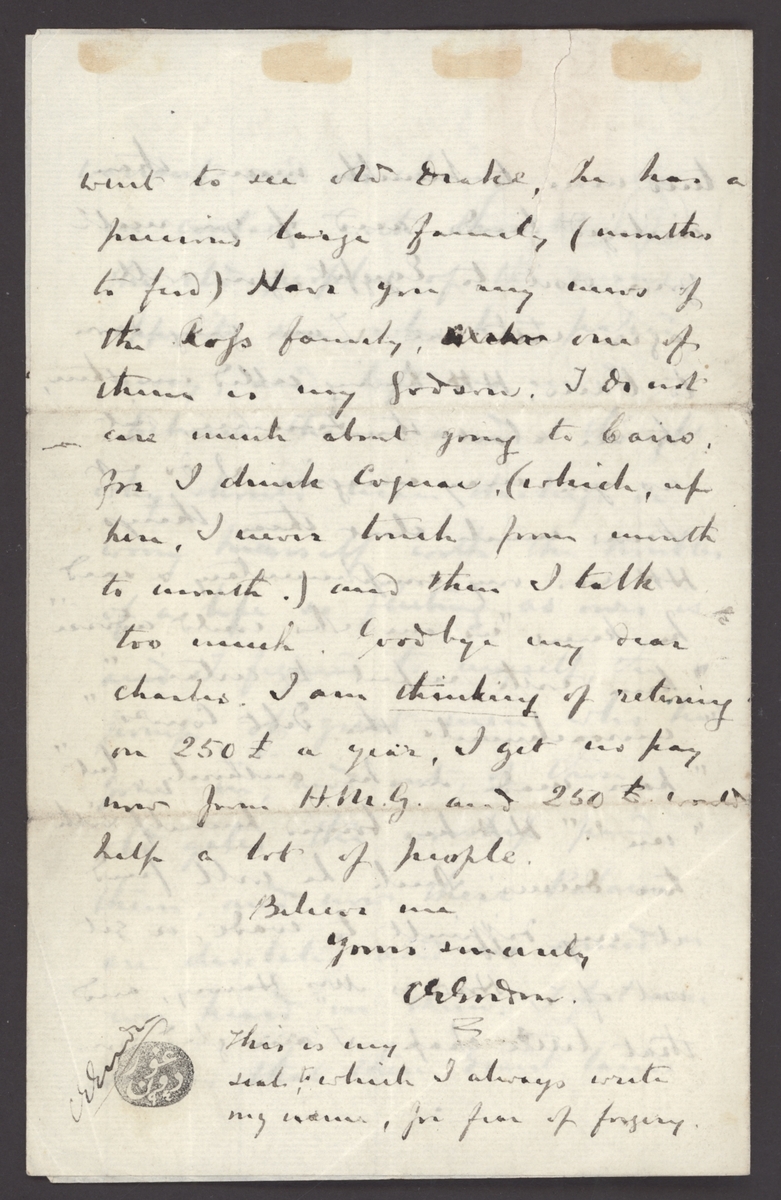 went to see old Drake, he has a
precious large family (mouths
to feed) Have you any news of
the Ross family, one of
them is my Godson. I do not
care much about going to Cairo,
for I drink Cognac, (which, up
here, I never touch from month
to month.) and then I talk
too much. Goodbye my dear
Charles. I am thinking of retiring
on 250 £ a year, I get no pay
now from H.M.G. and 250 £ would
help a lot of people.
Believe me
Yours sincerely
CEGordon.
This is my
seal, which I always write
my name, for fear of forgery.
CEGordon